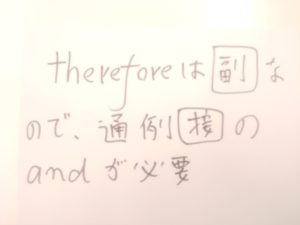 thereforeは副な
ので、通例接の
andが必要